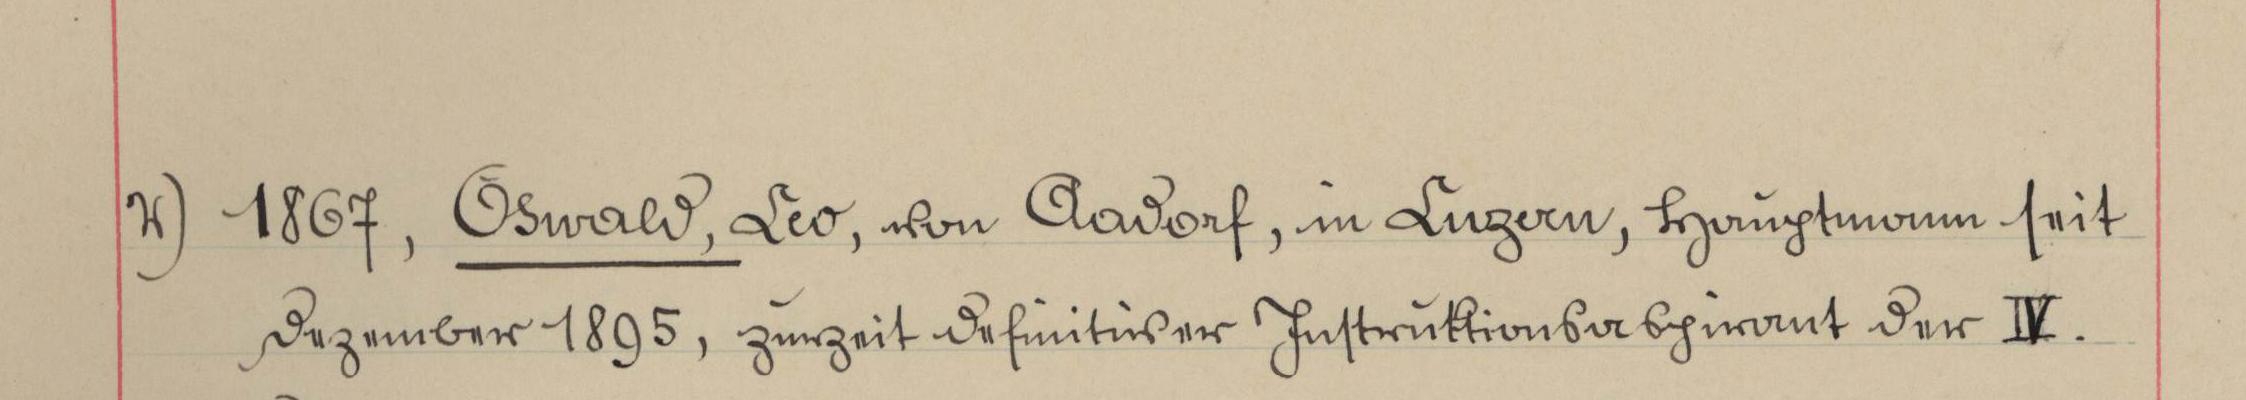 r) 1867, Oswald, Leo, von Aadorf, in Luzern, Hauptmann seit
Dezember 1895, zurzeit definitiver Instruktionsaspirant der IV.